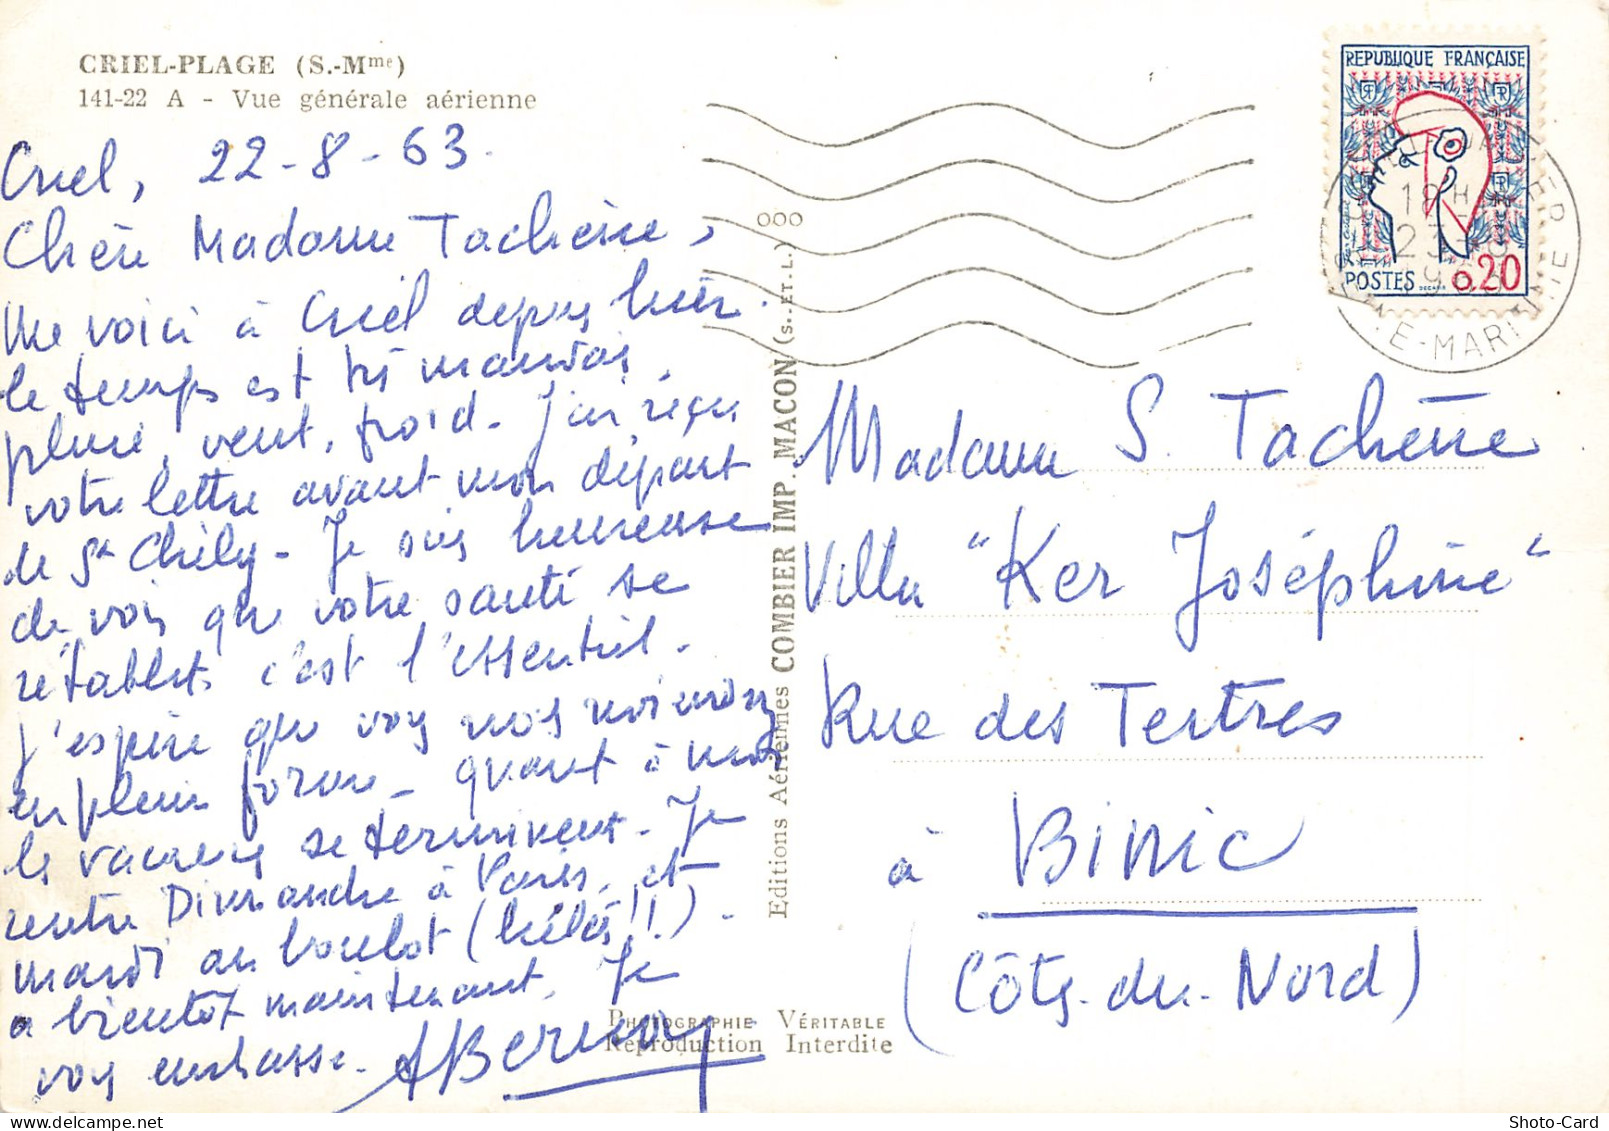 CRIEL-PLAGE (S.-Mme)
141-22 A - Vue générale aérienne
Criel, 22-8-63.
Chère Madame Tachène,
Me voici à Criel depuis hier.
le temps est très mauvais,
pluie, vent, froid. J'ai reçu
votre lettre avant mon départ
de St Chély - Je suis heureuse
de voir que votre santé se
rétablit, c'est l'essentiel.
J'espère que vous nous
en pleine forme - quant à moi
les vacances se terminent - Je
rentre Dimanche à Paris, et
mardi au boulot (hélas!!) -
a bientôt maintenant, Je
vous embrasse.
Editions Aériennes COMBIER IMP. MACON (S.-ET-L.) 000
PHOTOGRAPHIE VÉRITABLE
Reproduction Interdite
REPUBLIQUE FRANÇAISE
POSTES 0,20
18 H
23-8
E-MARITIME
Madame S. Tachène
Villa "Ker Joséphine"
Rue des Tertres
à Binic
(Côtes-du-Nord)
Shoto-Card